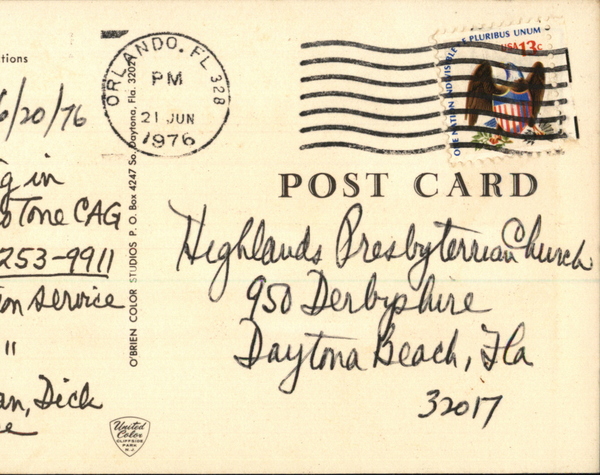 tions
6/20/76
g in
Tone CAG
253-9911
on service
"
an, Dick
O'BRIEN COLOR STUDIOS P. O. Box 4247 So. Daytona, Fla. 32021
United
Color
CLIFFSIDE
PARK
N.J.
ORLANDO, FL 328
PM
21 JUN
1976
ONE NATION INDIVISIBLE E PLURIBUS UNUM
USA 13c
POST CARD
Highlands Presbyterrian Church
950 Derbyshire
Daytona Beach, Fla
32017